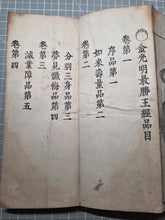 金光明最勝王經品目
卷第一
序品第一
如來壽量品第二
卷第二
分別三身品第三
夢見懺悔品第四
卷第三
滅業障品第五
卷第四